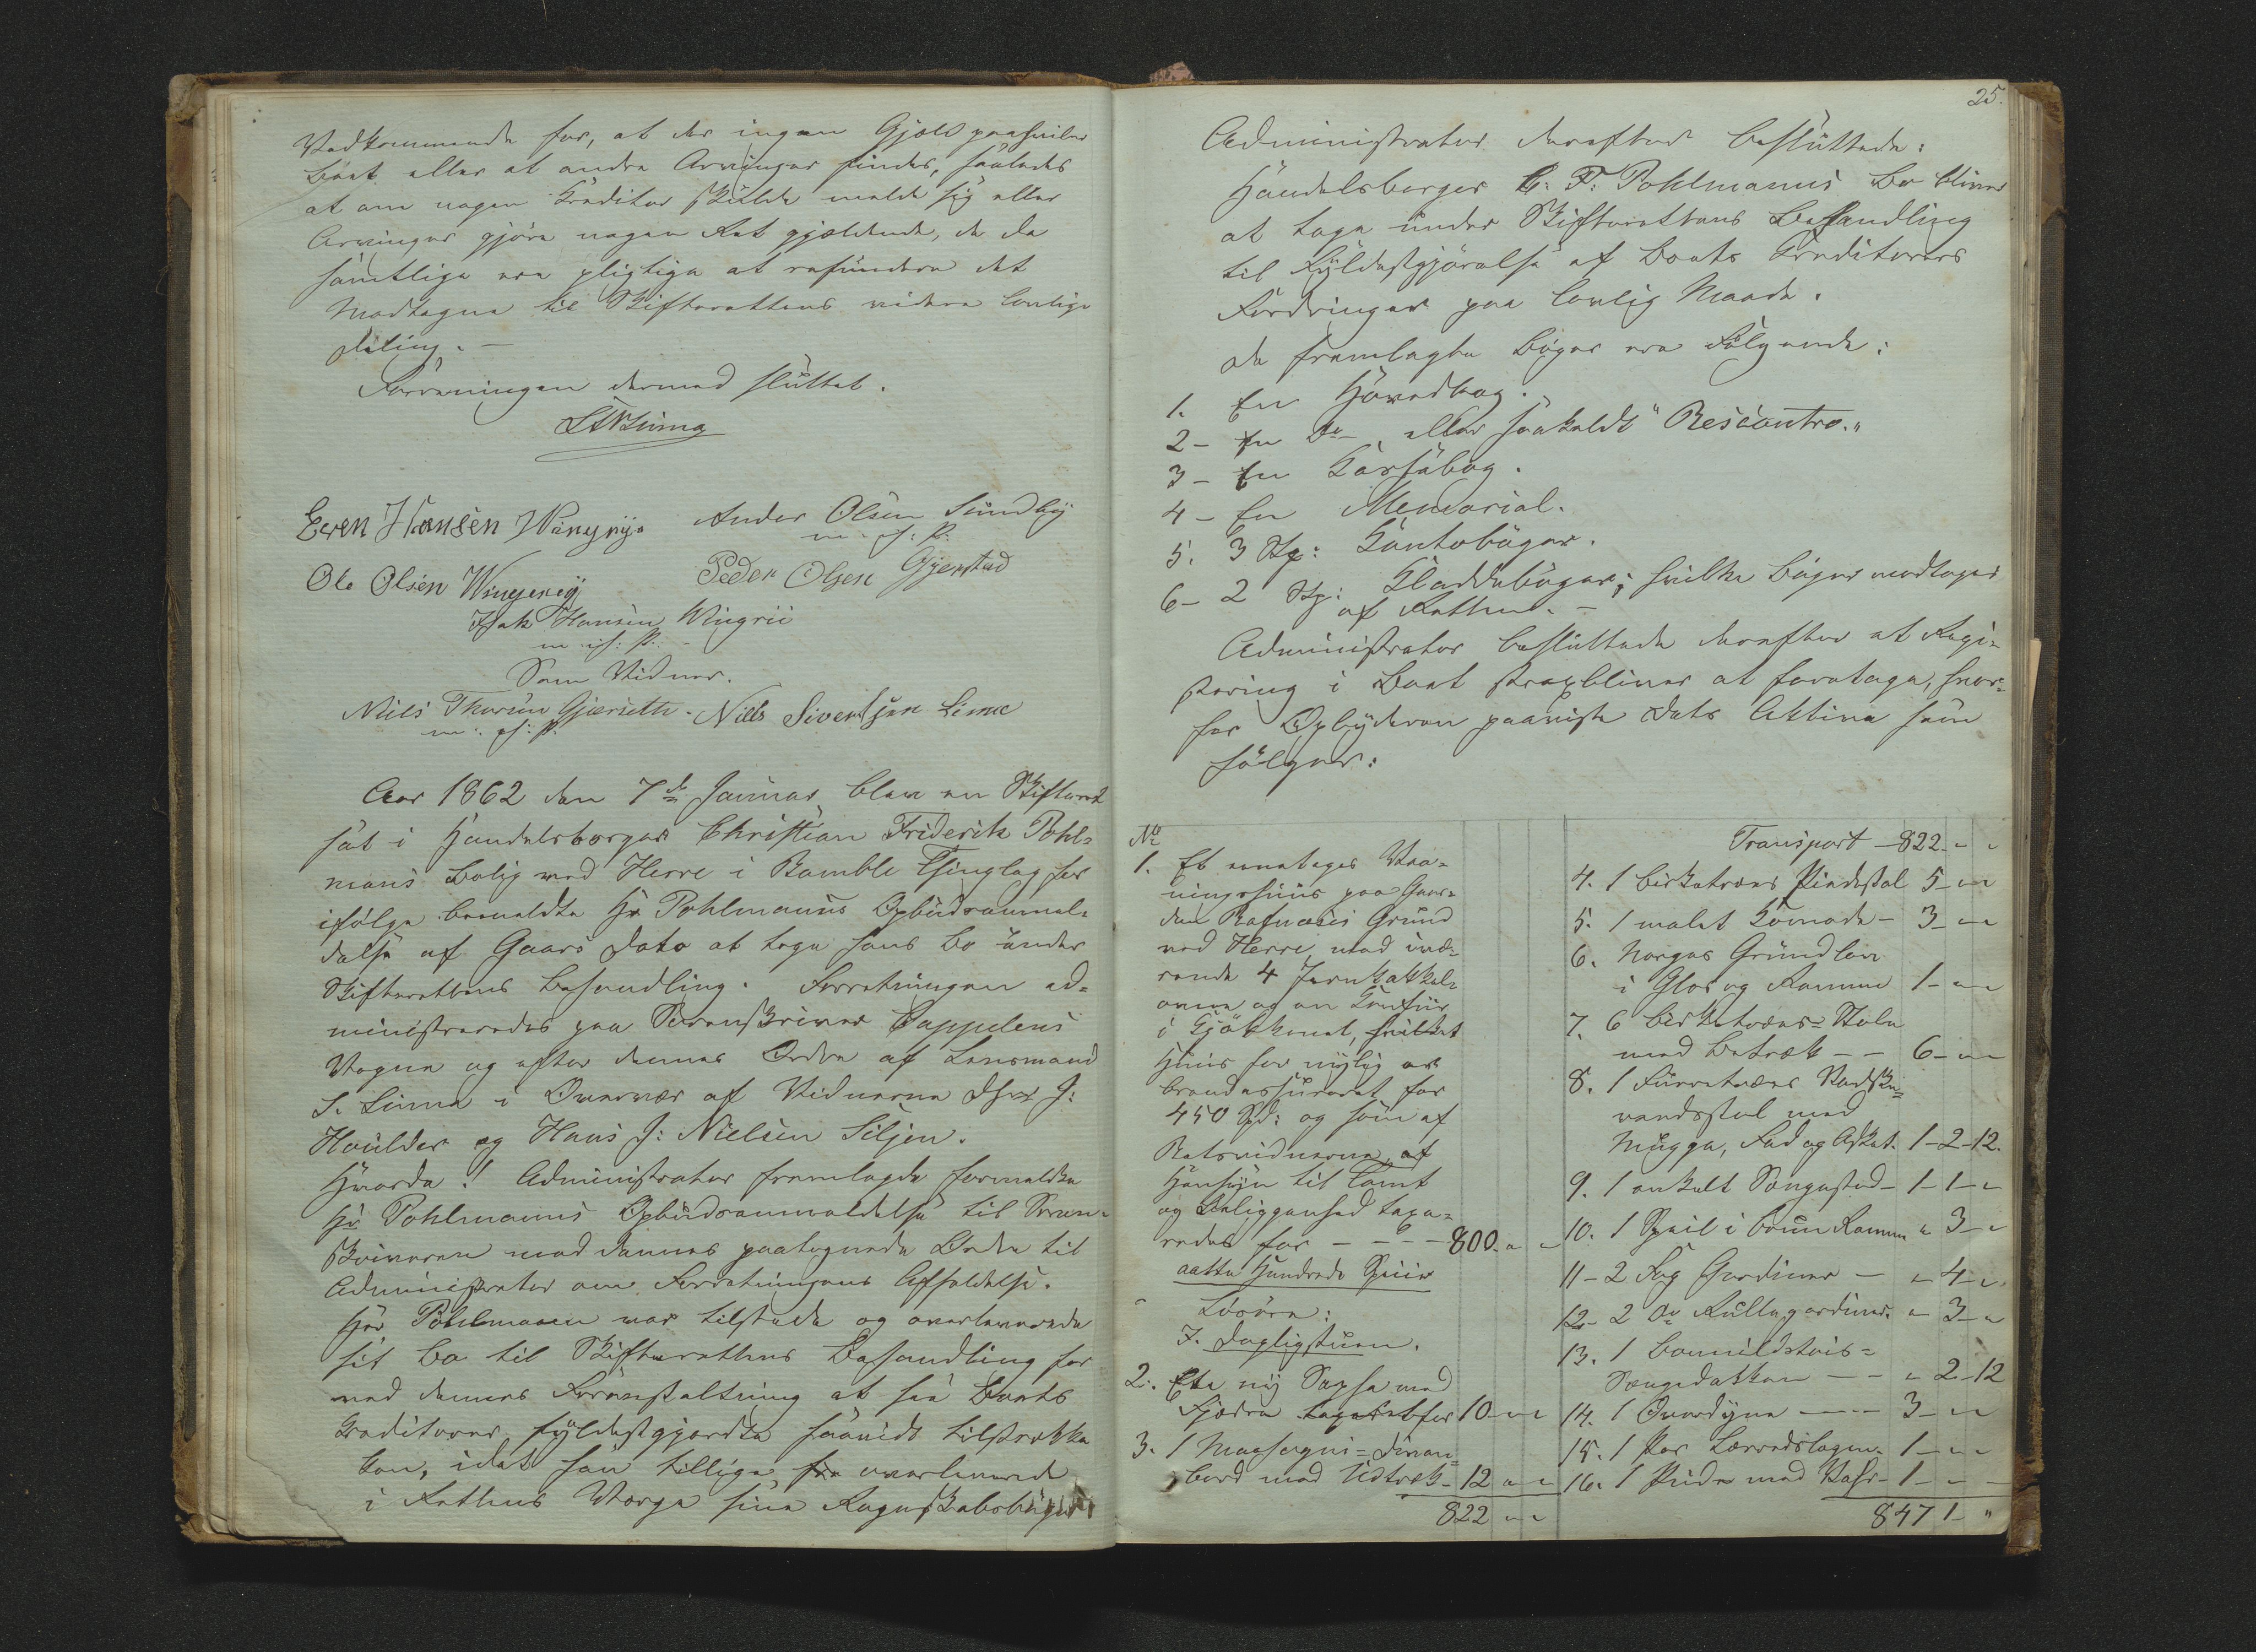 Vedkommende for, at der ingen Gjæld paahviler
Boet eller at andre Arvinger findes, saaledes
at om nogen Creditor skulde melde sig eller
Arvinger gjøre nogen Ret gjældende, de da
samtlige ere pligtige at refundere det
Modtagne til Skifterettens videre lovlige
Deling. –
Forretningen dermed sluttet.
Even Hansen
Anders Olsen Sundby
m. f. P.
Ole Olsen
Peder Olsen Gjerstad
Isak Hansen Wingrii
m. f. P.
Som Vidner.
Nils
Nills Sivertsen Linne
m. f. P.
Aar 1862 den 7de Januar blev en Skifteret
sat i Handelsborger Christian Friderik Pohl=
mans Bolig ved Herre i Bamble Thinglag for
ifølge bemeldte Hr Pohlmanns Opbudsanmel=
delse af Gaars Dato at tage hans Bo under
Skifterettens Behandling. Forretningen ad=
ministreredes paa Sorenskriver Cappelens
Vegne og efter dennes Ordre af Lensmand
S. Linne i Overvær af Vidnerne J:
og Hans J: Nielsen Siljen.
Hvorda! Administrator fremlagde formeldte
Hr Pohlmanns Opbudsanmeldelse til Soren=
skriveren med dennes paategnede Ordre til
Administrator om Forretningens Afholdelse.
Hr Pohlmann var tilstede og overleverede
sit Bo til Skifterettens Behandling for
ved dennes Foranstaltning at faa Boets
Creditorer fyldestgjordte saavidt tilstrække
kan, idet han tillige overleverede
i Rettens Værge sine Regnskabsbøger
25.
Administrator derefter besluttede:
Handelsborger C. F. Pohlmanns Bo bliver
at tage under Skifterettens Behandling
til Fyldestgjørelse af Boets Creditorers
Fordringer paa lovlig Maade.
De fremlagte Bøger ere Følgende:
1. En Hovedbog.
2 – En Do – eller saakaldt "Rescontro."
3 – En Cassabog.
4 – En Memorial.
5. 3 Stk: Contobøger.
6 – 2 Stk: Kladdebøger; hvilke Bøger modtoges
af Retten. –
Administrator besluttede derefter at Regi=
strering i Boet strax bliver at foretage, hvor=
for Opbyderen paaviste dets Aktiva som
følger:
No
1. Et eenetages Vaa=
ningshuus paa Gaar=
den Rafnæs's Grund
ved Herre med ivæ=
rende 4 Jernkakkel=
ovne og en Comfuir
i Kjøkkenet, hvilket
Huus for nylig er
brandassureret for
450 Spd: og som af
Retsvidnerne af
Hensyn til Tomt
og Beliggenhed taxe=
redes for – – – 800 " "
aatte Hundrede Spcier
Løsøre:
I. Dagligstuen.
2. En ny Sopha med
Fjædre taxeret for 10 " "
3. 1 Mahogni=Divan=
bord med Udtræk – 12 " "
822 " "
Transport – 822 " "
4. 1 Birketræes Pindestol 5 – " "
5. 1 malet Comode – 3 – " "
6. Norges Grundlov
i Glas og Ramme 1 – " "
7. 6 Birketræes=Stole
med Betræk – – 6 – " "
8. 1 Furretræes Vaske=
vandsstol med
Mugge, Fad og 1 – 2 – 12.
9. 1 enkelt Sengested – 1 – 1 – "
10. 1 Speil i bruun Ramme " 3 – "
11 – 2 Fag Gardiner – " 4 – "
12 – 2 Do Rullegardiner. " 3 – "
13. 1
Sengedækken – – " 2 – 12
14. 1 Overdyne – – 3 – " "
15. 1 Par Lærredslagen. 1 – " "
16. 1 Pude med Vaar – 1 – "
847 1 – "